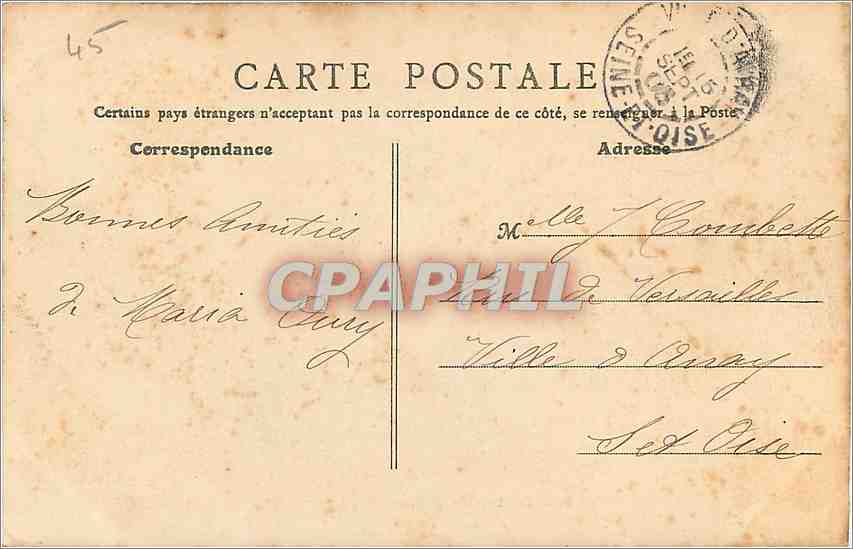 45
CARTE POSTALE
Certains pays étrangers n'acceptant pas la correspondance de ce côté, se renseigner à la Poste
Correspondance
Adresse
Bonnes Amitiés
de Maria Oury
Melle J Combette
Rue de Versailles
Ville d Avray
S et Oise
SEINE-ET-OISE
15 SEPT
CPAPHIL